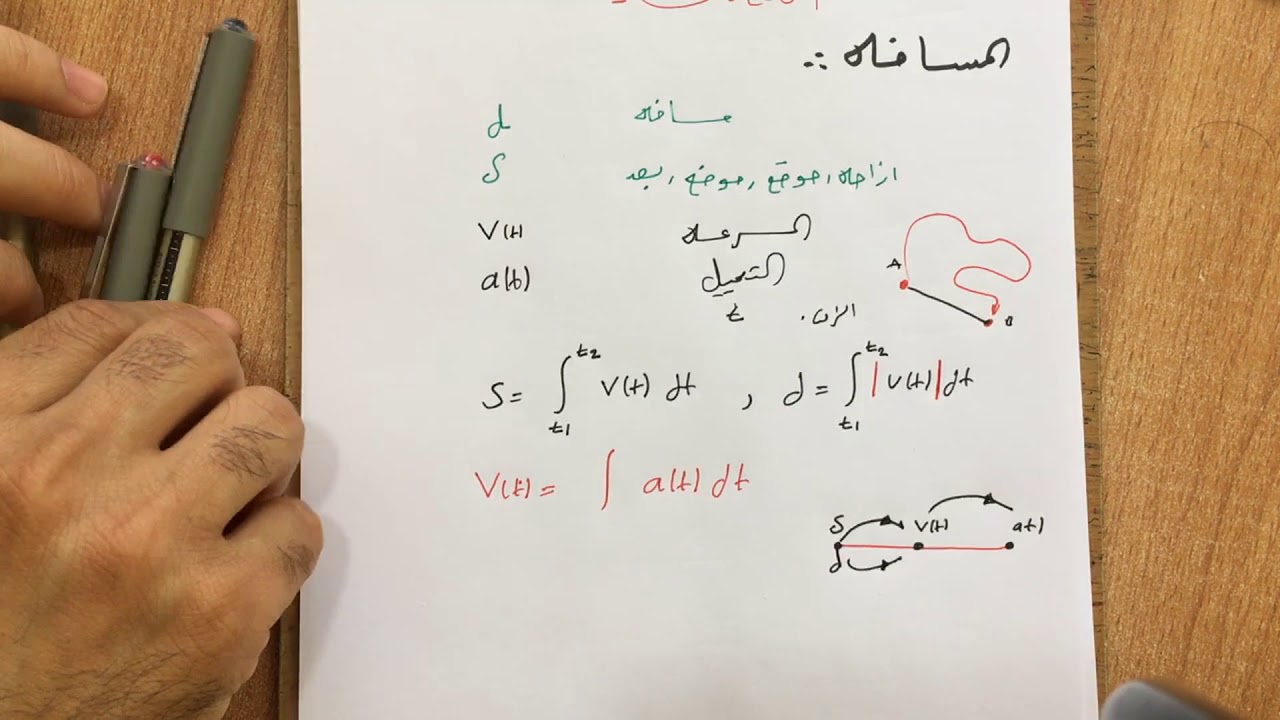 المسافه :.
d مسافه
S ازاحه , موقع , موضع , بعد
V(t) السرعه
a(t) التعجيل
t الزمن .
A
B
S = ∫_{t1}^{t2} V(t) dt , d = ∫_{t1}^{t2} |v(t)| dt
V(t) = ∫ a(t) dt
S V(t) a(t)
d